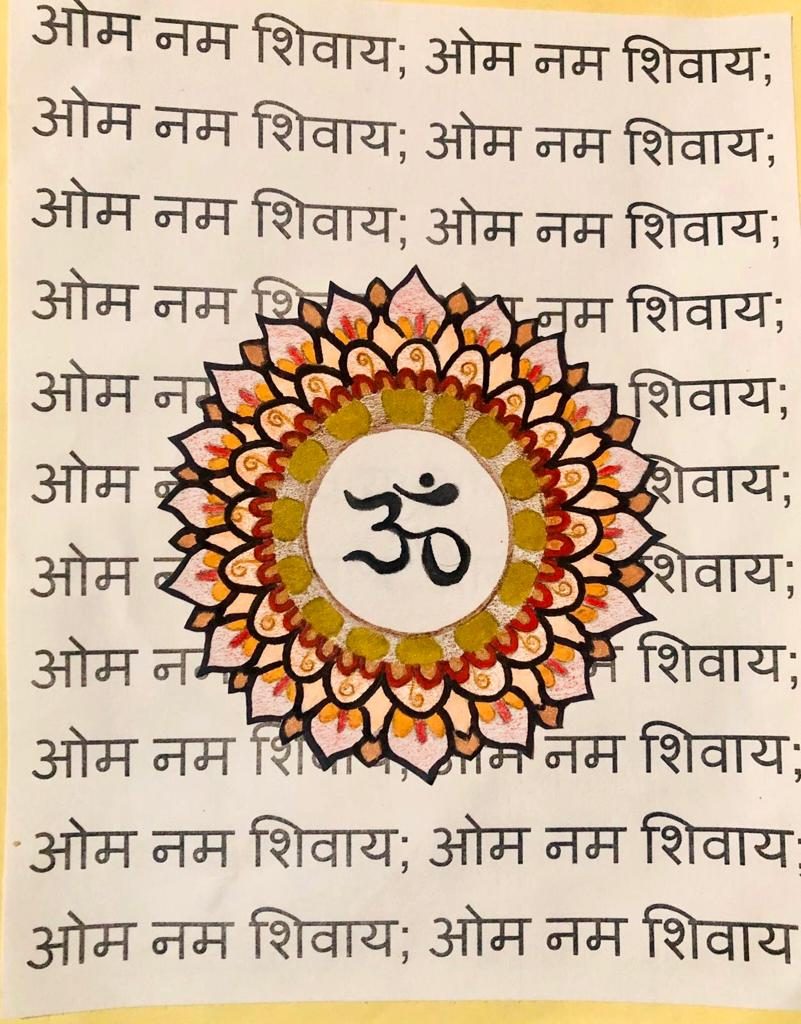 ओम नम शिवाय; ओम नम शिवाय;
ओम नम शिवाय; ओम नम शिवाय;
ओम नम शिवाय; ओम नम शिवाय;
ओम नम नम शिवाय;
ओम शिवाय;
ओम शिवाय;
ॐ
ओम शिवाय;
ओम शिवाय;
ओम नम नम शिवाय;
ओम नम शिवाय; ओम नम शिवाय;
ओम नम शिवाय; ओम नम शिवाय